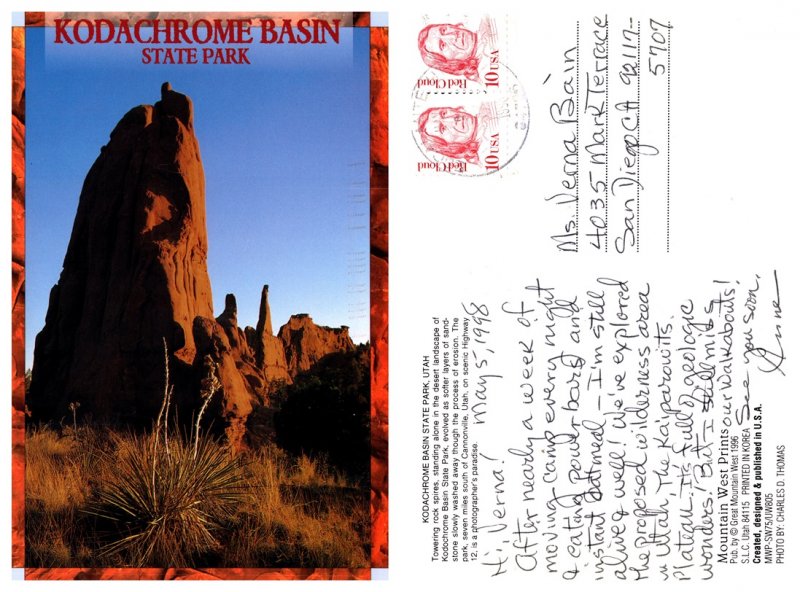 KODACHROME BASIN
STATE PARK
KODACHROME BASIN STATE PARK, UTAH
Towering rock spires, standing alone in the desert landscape of
Kodochrome Basin State Park, evolved as softer layers of sand-
stone slowly washed away though the process of erosion. The
park, seven miles south of Cannonville, Utah, on scenic Highway
12, is a photographer's paradise.
May 5, 1998
Hi Verna!
After nearly a week of
moving camp every night
& eating powerbars and
instant oatmeal - I'm still
alive & well! We've explored
the proposed wilderness area
in Utah, the Kaiparowits
Plateau. It's full of geologic
wonders! But I still miss
our Walkabouts!
See you soon.
Anne
Mountain West Prints
Pub. by © Great Mountain West 1996
S.L.C. Utah 84115 PRINTED IN KOREA
Created, designed & published in U.S.A.
MWP-SW75/UW805
PHOTO BY: CHARLES D. THOMAS
Red Cloud
10 USA
Red Cloud
10 USA
Ms. Verna Bain
4035 Mark Terrace
San Diego CA 92117-
5707